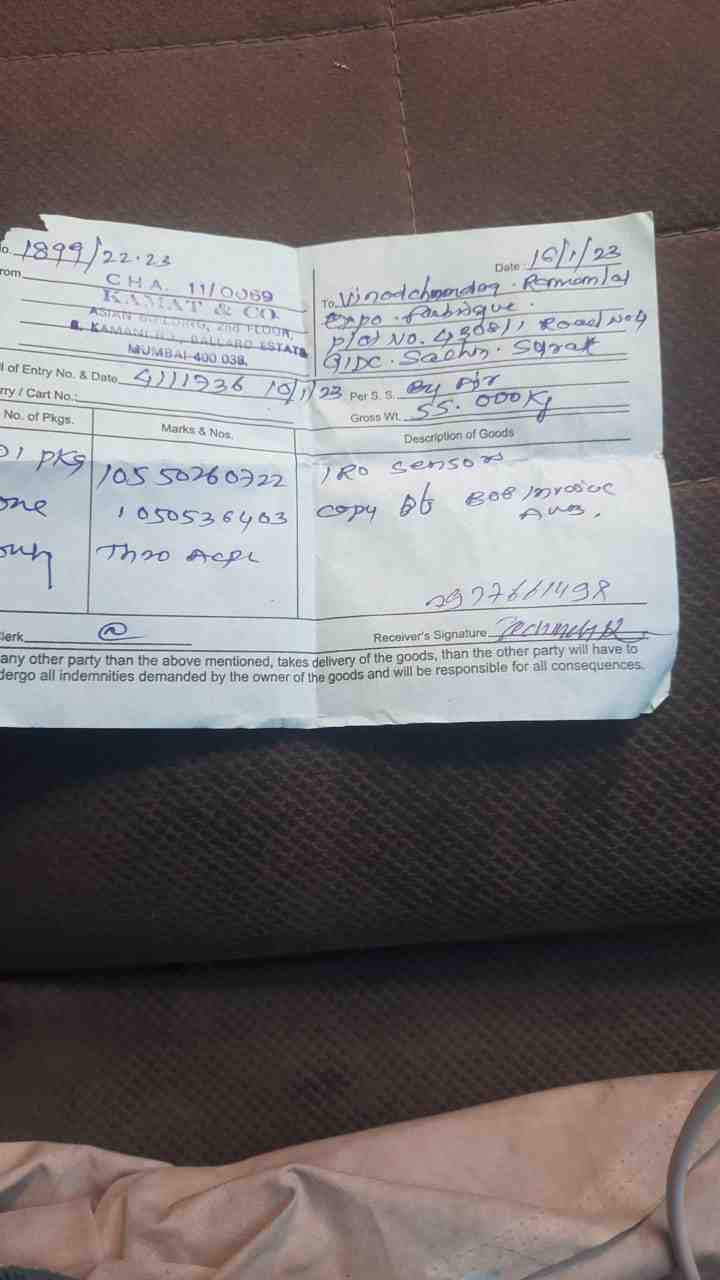 o. 1899/22.23
Date : 16/1/23
rom
CHA. 11/0069
KAMAT & CO
ASIAN BUILDING, 2nd FLOOR,
R. KAMANI RD, BALLARD ESTATE
MUMBAI-400 038.
To, Vinodchandra Ramanlal
Expo Fabrique
Plot No. Road No 4
GIDC. Sachin. Surat
l of Entry No. & Date 4111736 10/1/23 Per S. S. By Air
rry / Cart No.: Gross Wt. 55.000Kg
No. of Pkgs. Marks & Nos. Description of Goods
01 Pkg 10550260722 IRO Sensors
one 1050536403 copy of BOE Invoice
only
2977661498
lerk Receiver's Signature
any other party than the above mentioned, takes delivery of the goods, than the other party will have to
dergo all indemnities demanded by the owner of the goods and will be responsible for all consequences.